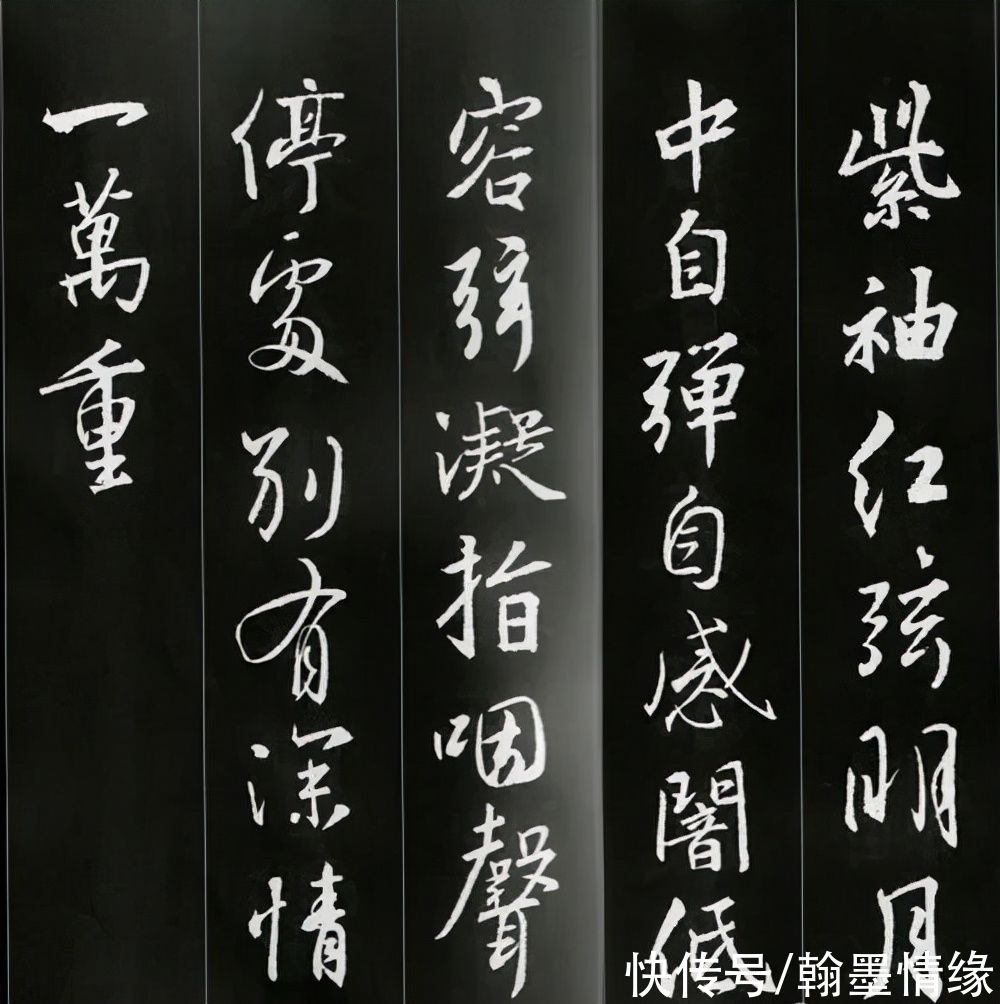 紫袖红弦明月
中自弹自感闇低
容弦凝指咽聲
停處别有深情
一萬重
快传号/翰墨情缘